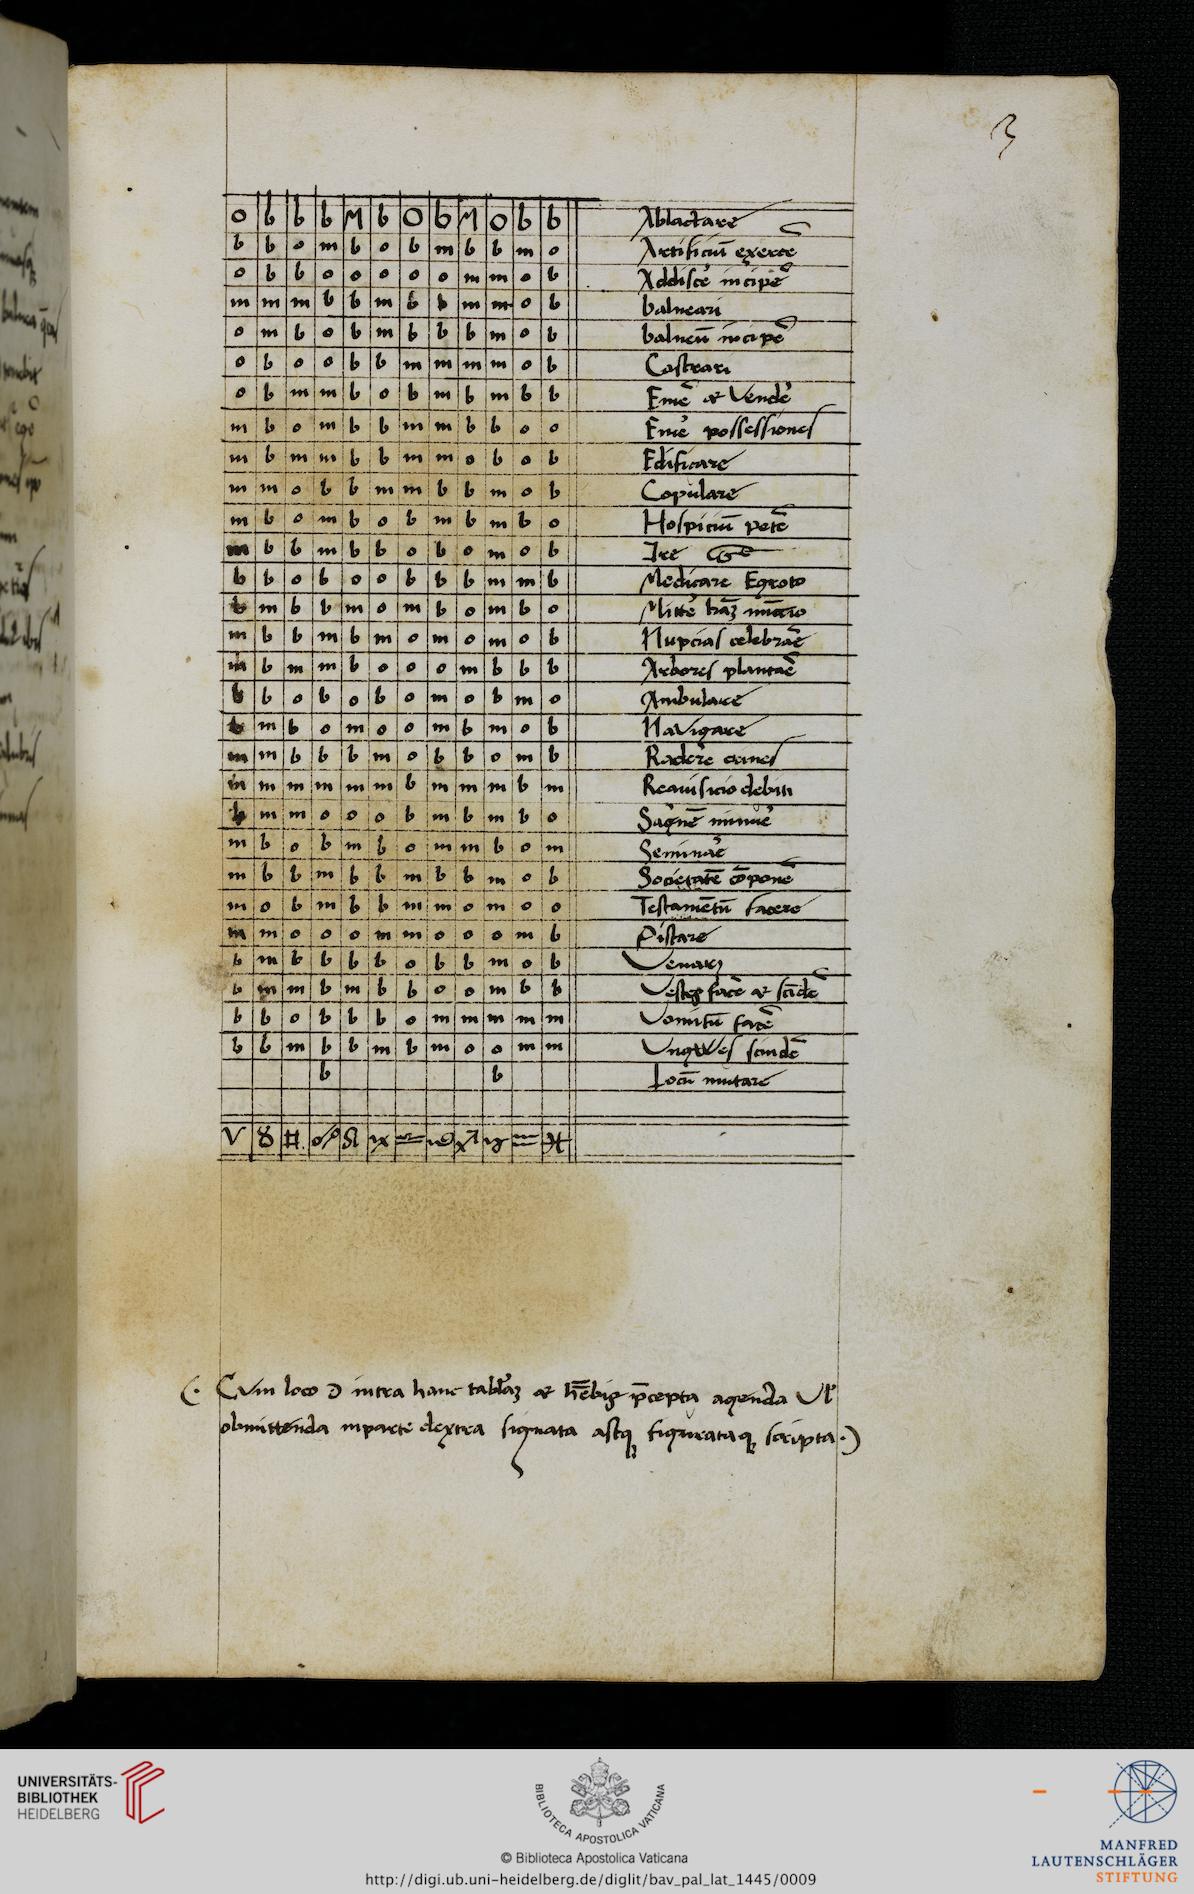 3
o b b b M b O b M O b b Ablactare
b b o m b o b m b b m o Artificiū exercē
o b b o o o o o m m o b Addiscē incipē
m m m b b m b b m m o b balneari
o m b o b m b b b m o b balneū incipē
o b o o b b m m m m o b Castrari
o b m m b o b m b m b b Emē et Vendē
m b o m b b m m b b o o Emē possessiones
m b m m b b m m o b o b Edificare
m m o b b m m b b m o b Copulare
m b o m b o b m b m b o Hospiciū petē
m b b m b b o b o m o b Ire
b b o b o o b b b m m b Medicare Egroto
b m b b m o m b o m b o Mittē
m b b m b m o m o m o b Nupcias celebrāe
m b m m b o o o m b b b Arbores plantāe
b b o b o b o m o b m o Ambulare
b m b o m o o m b m o b Navigare
m m b b b m o b b o m b Radere crines
m m m m m m b m m m b m Requisicio debiti
b m m o o o b m b m b o Sāgnē minuē
m b o b m b o m m b o m Semināe
m b b m b b m b b m o b Societatē cōponē
m o b m b b m m o m o o Testamētū facere
m m o o o m m o o o m b Pistare
b m b b b b o b b m o b Venari
b m m b m b b o o m b b Vestes facē et scīdē
b b o b b b o m m m m m Vomitū facē
b b m b b m b m o o m m Ungwes scindē
b b Locū mutare
♈ ♉ ♊ ♋ ♌ ♍ ♎ ♏ ♐ ♑ ♒ ♓
Cum loco intra hanc et p̄cepta agenda Vl'
obmittenda in parte dextra signata figurataq scripta
UNIVERSITÄTS-
BIBLIOTHEK
HEIDELBERG
BIBLIOTECA APOSTOLICA VATICANA
© Biblioteca Apostolica Vaticana
http://digi.ub.uni-heidelberg.de/diglit/bav_pal_lat_1445/0009
MANFRED
LAUTENSCHLÄGER
STIFTUNG